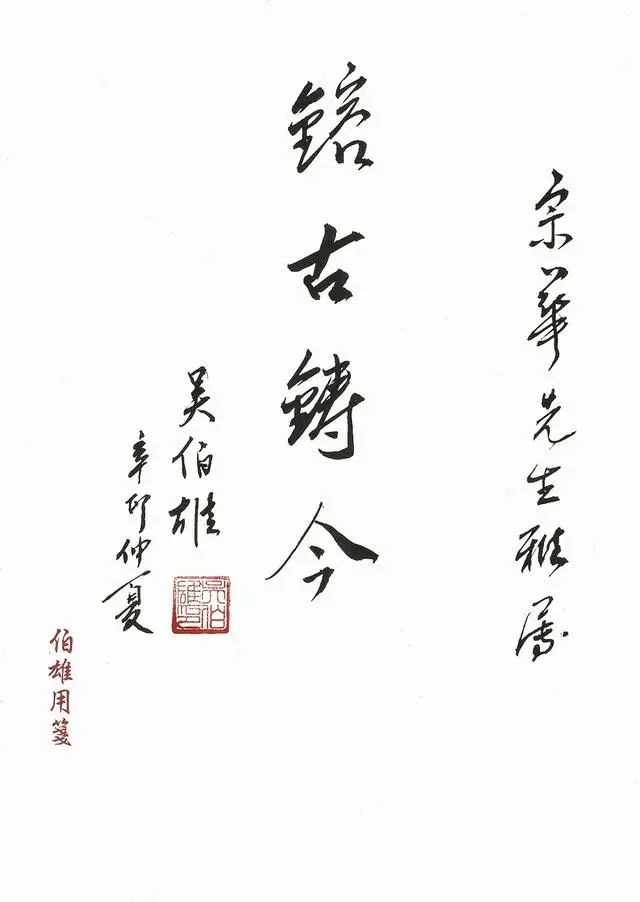 宗華先生雅屬
鎔古鑄今
吴伯雄
辛卯仲夏
吳伯雄印
伯雄用箋